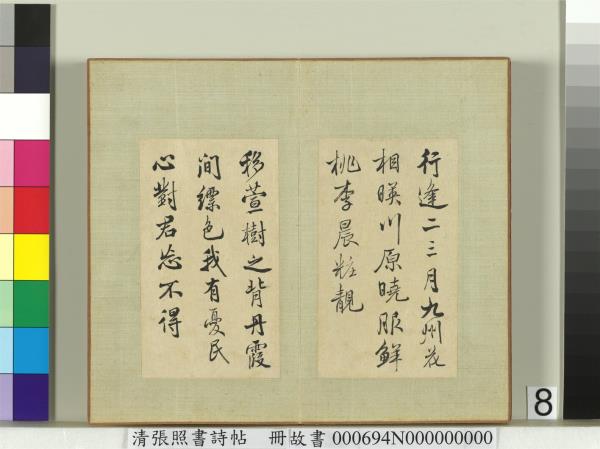 行逢二三月九州花
相暎川原曉服鮮
桃李晨粧靚
移萱樹之背丹霞
間縹色我有憂民
心對君忘不得
8
清張照書詩帖 冊故書 000694N000000000